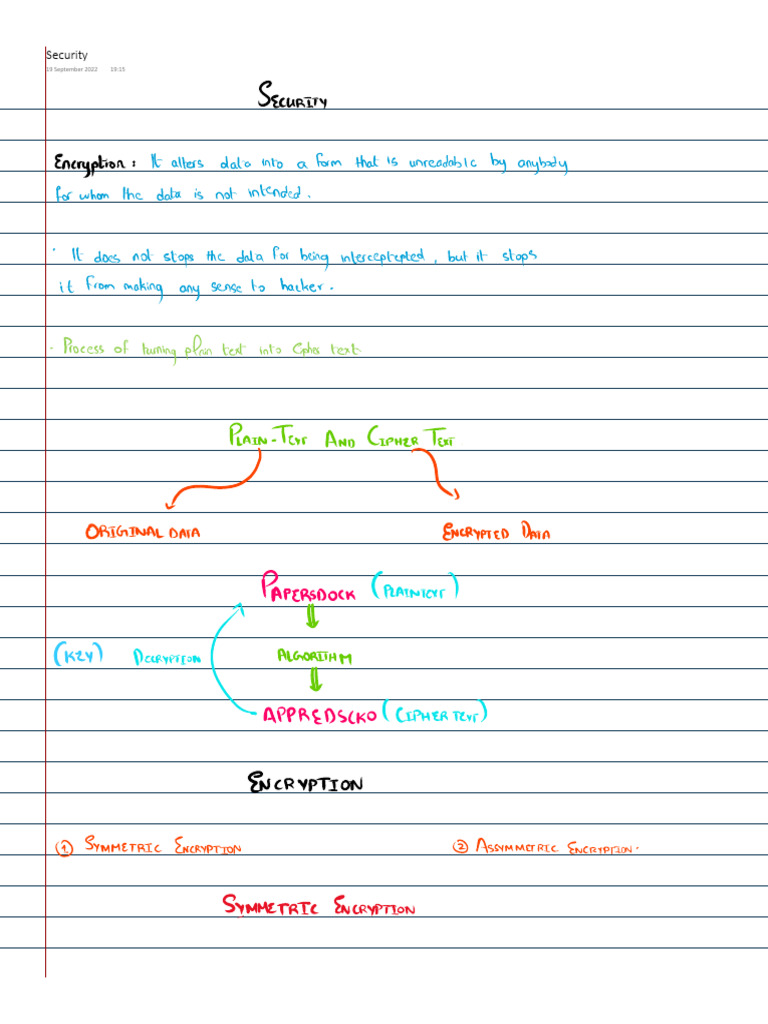 Security
19 September 2022 19:15
SECURITY
Encryption: It alters data into a form that is unreadable by anybody
for whom the data is not intended.
· It does not stops the data for being interceptepted, but it stops
it from making any sense to hacker.
· Process of turning plain text into Cipher text
PLAIN-TEXT AND CIPHER TEXT
ORIGINAL DATA ENCRYPTED DATA
PAPERSDOCK (PLAINTEXT)
(KEY) DECRYPTION ALGORITHM
APPREDSCKO (CIPHER TEXT)
ENCRYPTION
① SYMMETRIC ENCRYPTION ② ASSYMMETRIC ENCRYPTION.
SYMMETRIC ENCRYPTION